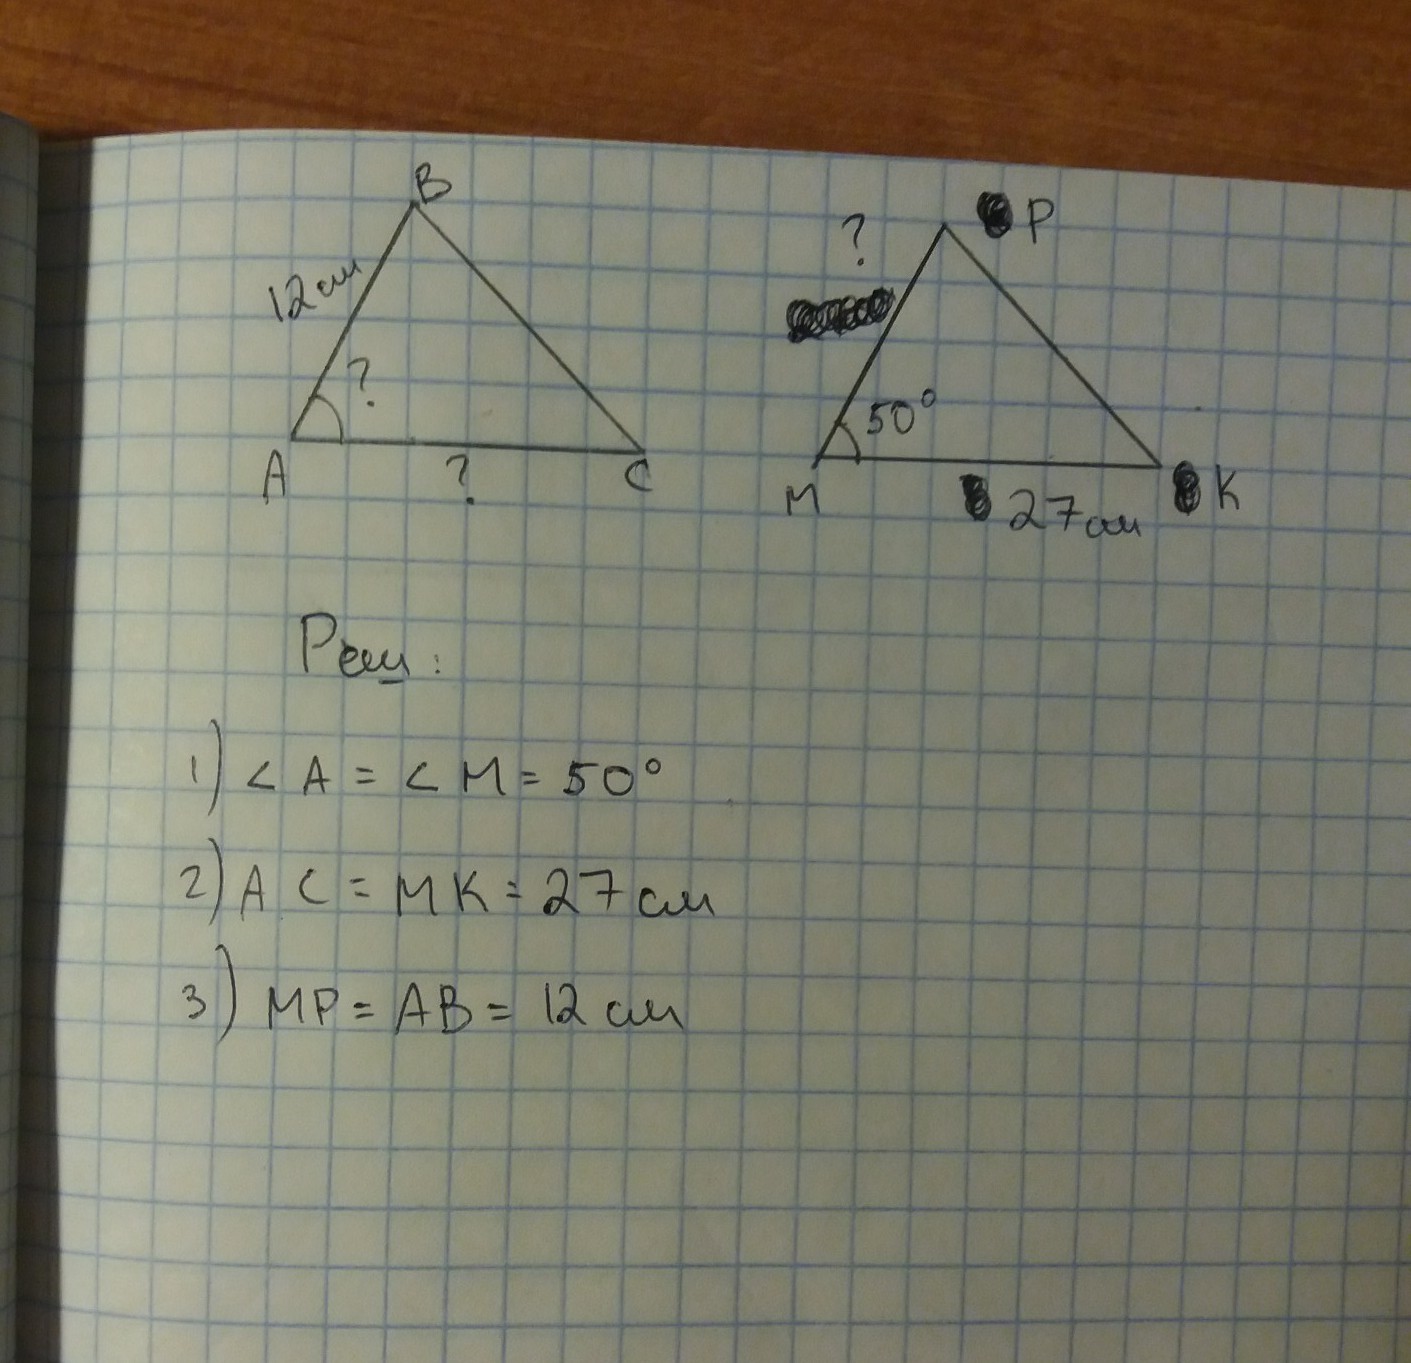 B
P
?
12 см
?
50°
A
?
C
M
27 см
K
Реш:
1) < A = < M = 50°
2) A C = M K = 27 см
3) MP = AB = 12 см